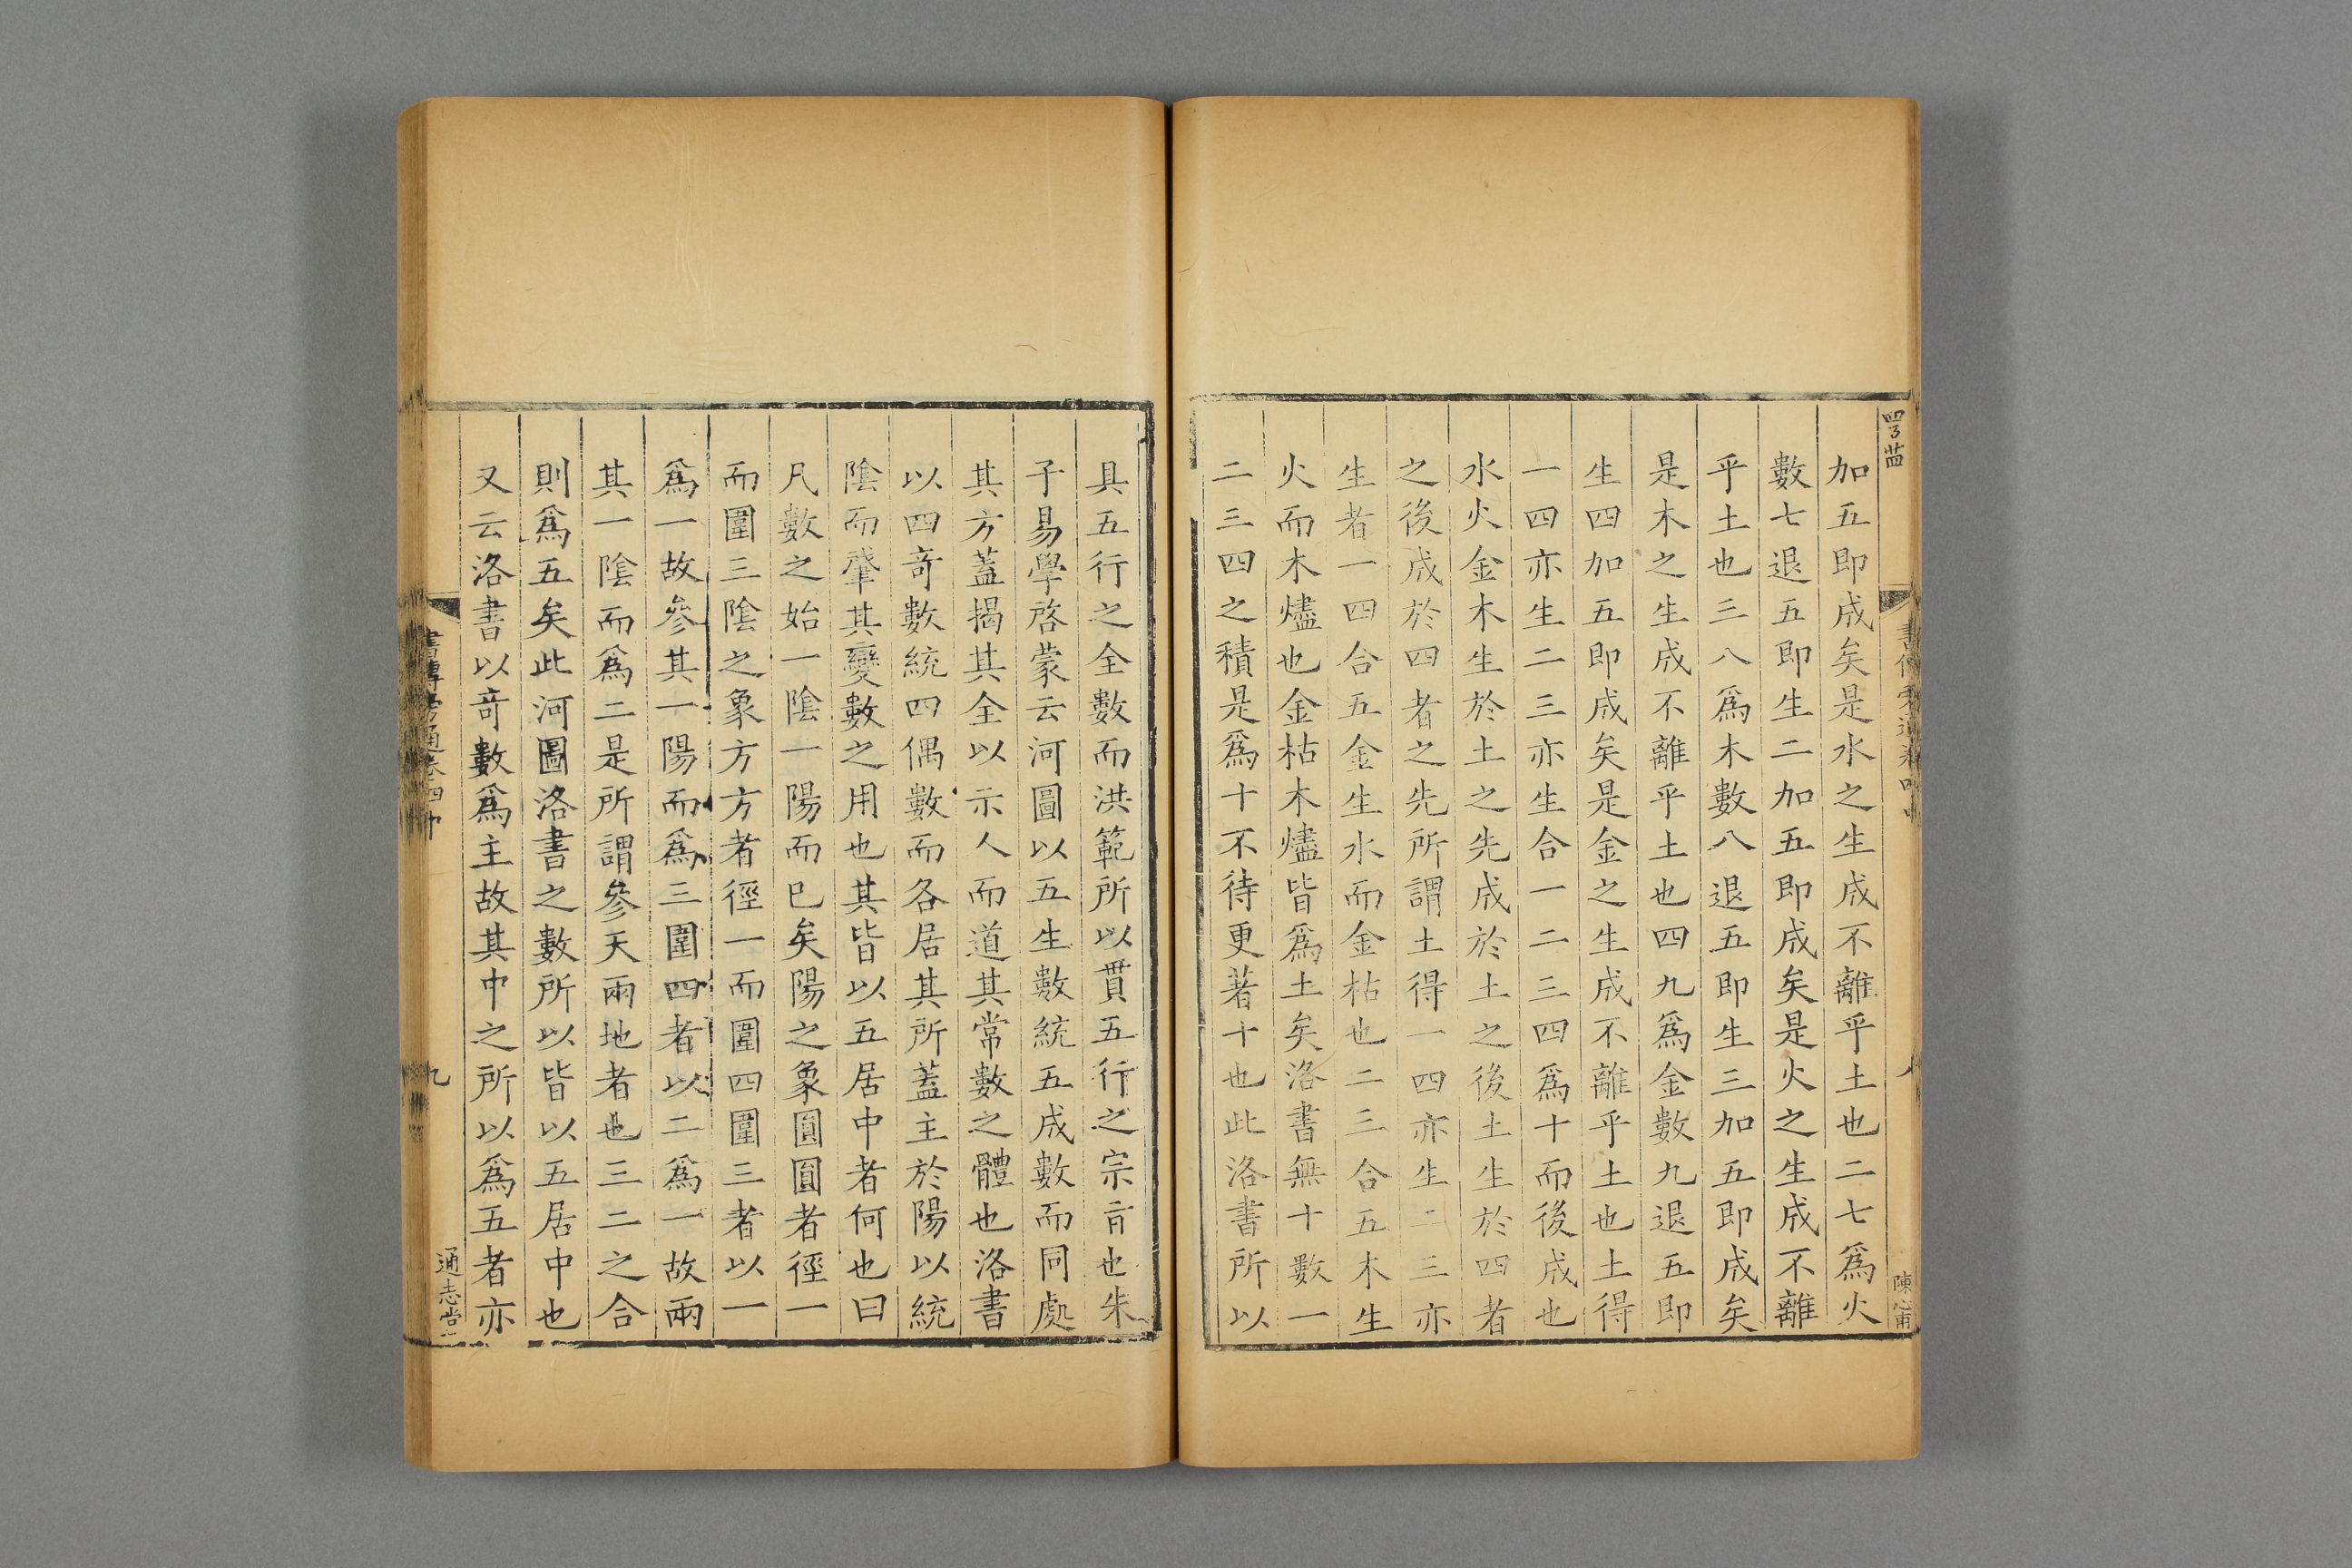 加五即成矣是水之生成不離乎土也二七爲火
數七退五即生二加五即成矣是火之生成不離
乎土也三八爲木數八退五即生三加五即成矣
是木之生成不離乎土也四九爲金數九退五即
生四加五即成矣是金之生成不離乎土也土得
一四亦生二三亦生合一二三四爲十而後成也
水火金木生於土之先成於土之後土生於四者
之後成於四者之先所謂土得一四亦生二三亦
生者一四合五金生水而金枯也二三合五木生
火而木燼也金枯木燼皆爲土矣洛書無十數一
二三四之積是爲十不待更著十也此洛書所以
具五行之全數而洪範所以貫五行之宗旨也朱
子易學啓蒙云河圖以五生數統五成數而同處
其方蓋揭其全以示人而道其常數之體也洛書
以四奇數統四偶數而各居其所蓋主於陽以統
陰而肇其變數之用也其皆以五居中者何也曰
凡數之始一陰一陽而已矣陽之象圓圓者徑一
而圍三陰之象方方者徑一而圍四圍三者以一
爲一故參其一陽而爲三圍四者以二爲一故兩
其一陰而爲二是所謂參天兩地者也三二之合
則爲五矣此河圖洛書之數所以皆以五居中也
又云洛書以奇數爲主故其中之所以爲五者亦
書傳旁通卷四中
九
通志堂